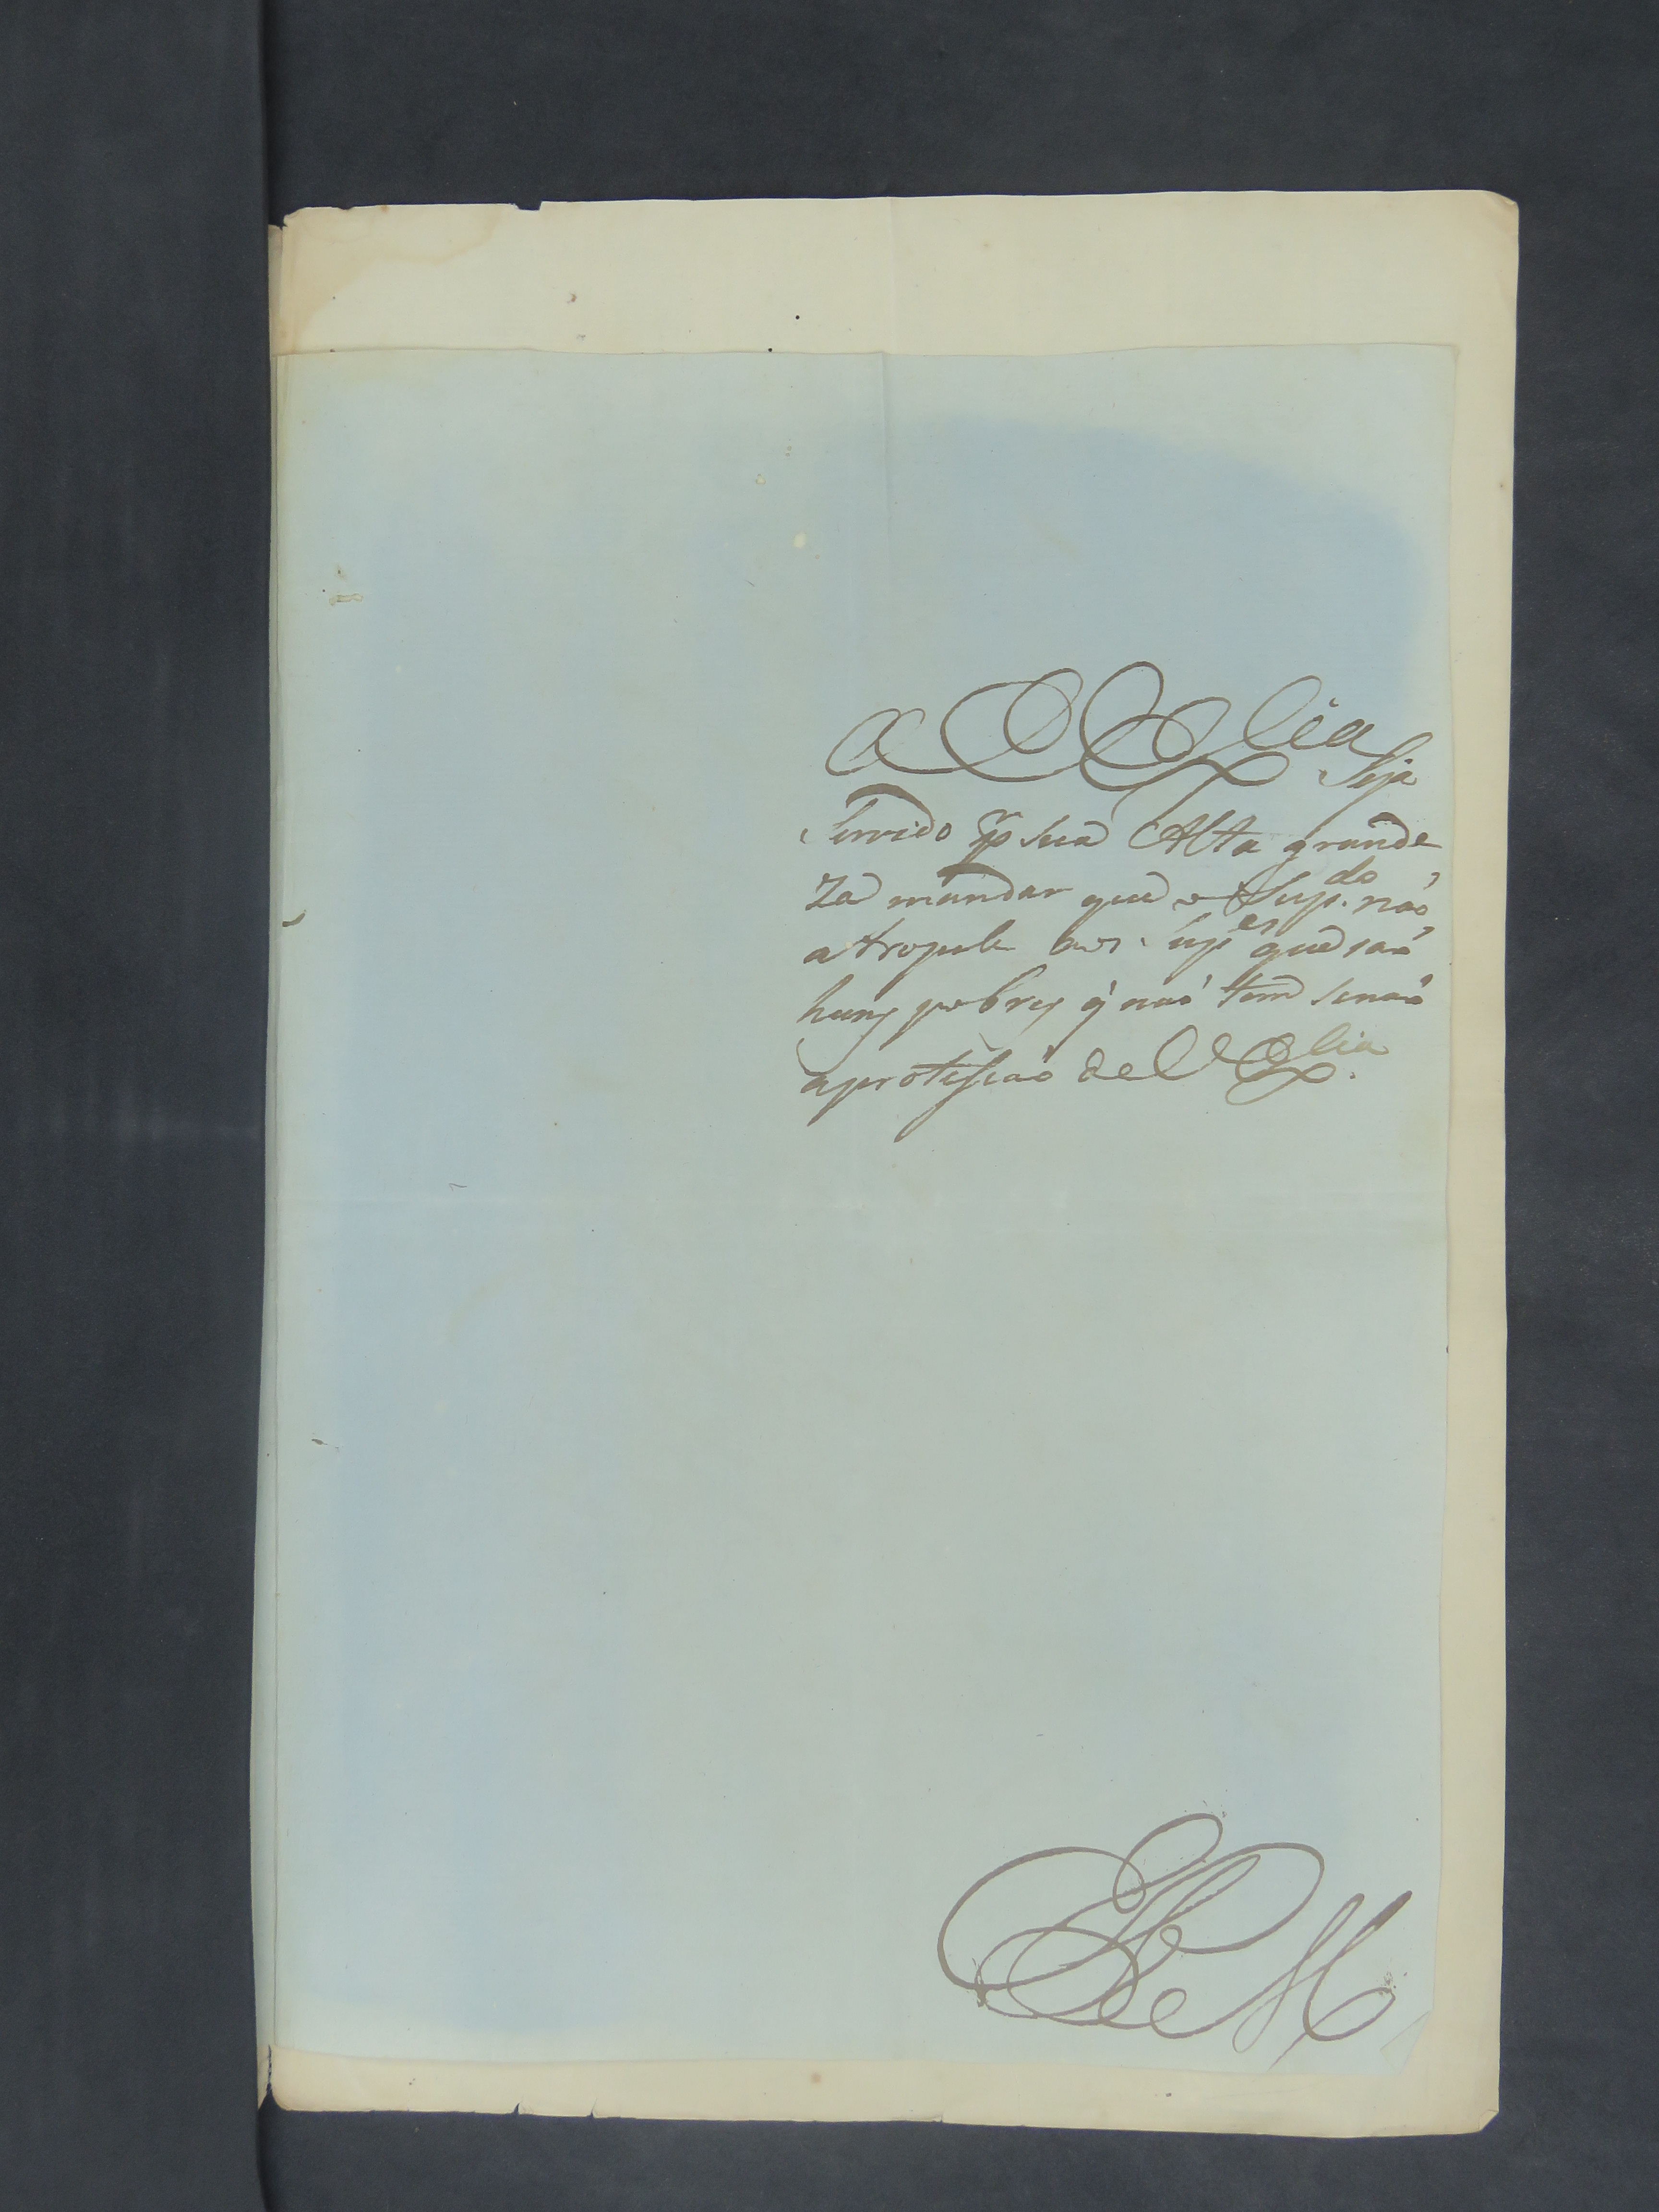 A V Ex.lia Seja
Servido p.r sua Alta grande
za mandar que o Sup.do não
atropele aos Sup.es que são
huns pobres q̃ não tem senão
a protessão de V Ex.lia
E R M